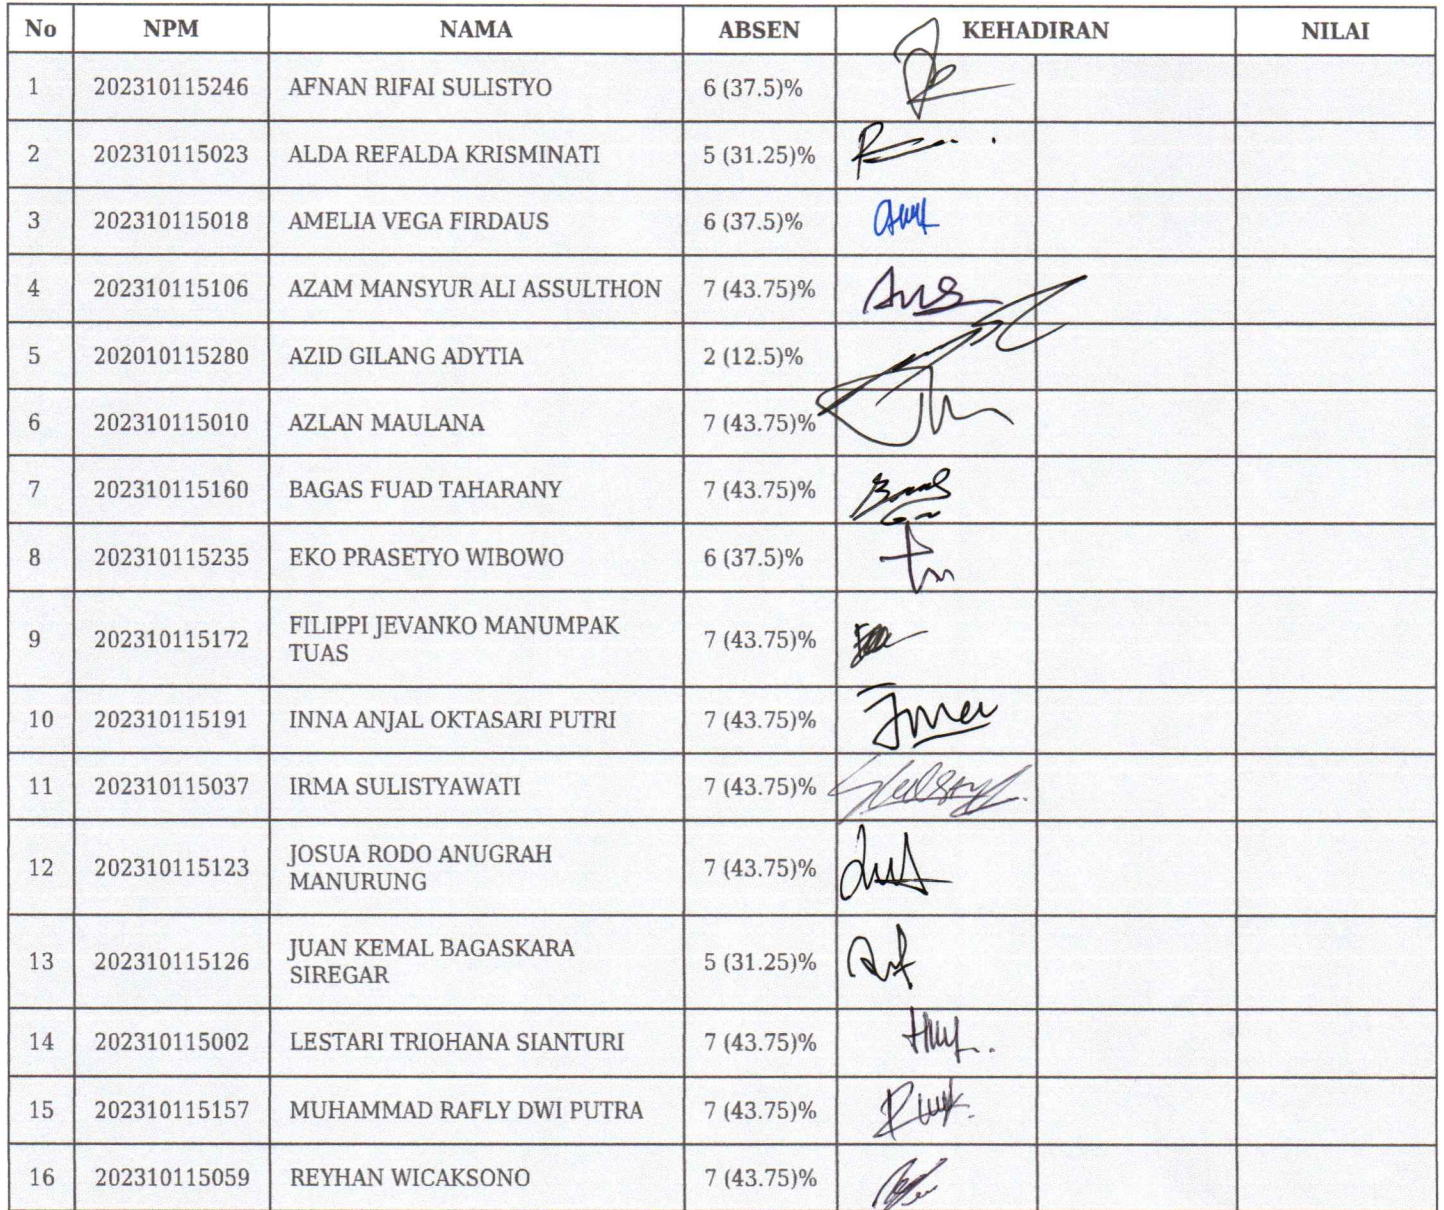 No NPM NAMA ABSEN KEHADIRAN NILAI
1 202310115246 AFNAN RIFAI SULISTYO 6 (37.5)%
2 202310115023 ALDA REFALDA KRISMINATI 5 (31.25)%
3 202310115018 AMELIA VEGA FIRDAUS 6 (37.5)%
4 202310115106 AZAM MANSYUR ALI ASSULTHON 7 (43.75)%
5 202010115280 AZID GILANG ADYTIA 2 (12.5)%
6 202310115010 AZLAN MAULANA 7 (43.75)%
7 202310115160 BAGAS FUAD TAHARANY 7 (43.75)%
8 202310115235 EKO PRASETYO WIBOWO 6 (37.5)%
9 202310115172 FILIPPI JEVANKO MANUMPAK 7 (43.75)%
TUAS
10 202310115191 INNA ANJAL OKTASARI PUTRI 7 (43.75)%
11 202310115037 IRMA SULISTYAWATI 7 (43.75)%
12 202310115123 JOSUA RODO ANUGRAH 7 (43.75)%
MANURUNG
13 202310115126 JUAN KEMAL BAGASKARA 5 (31.25)%
SIREGAR
14 202310115002 LESTARI TRIOHANA SIANTURI 7 (43.75)%
15 202310115157 MUHAMMAD RAFLY DWI PUTRA 7 (43.75)%
16 202310115059 REYHAN WICAKSONO 7 (43.75)%